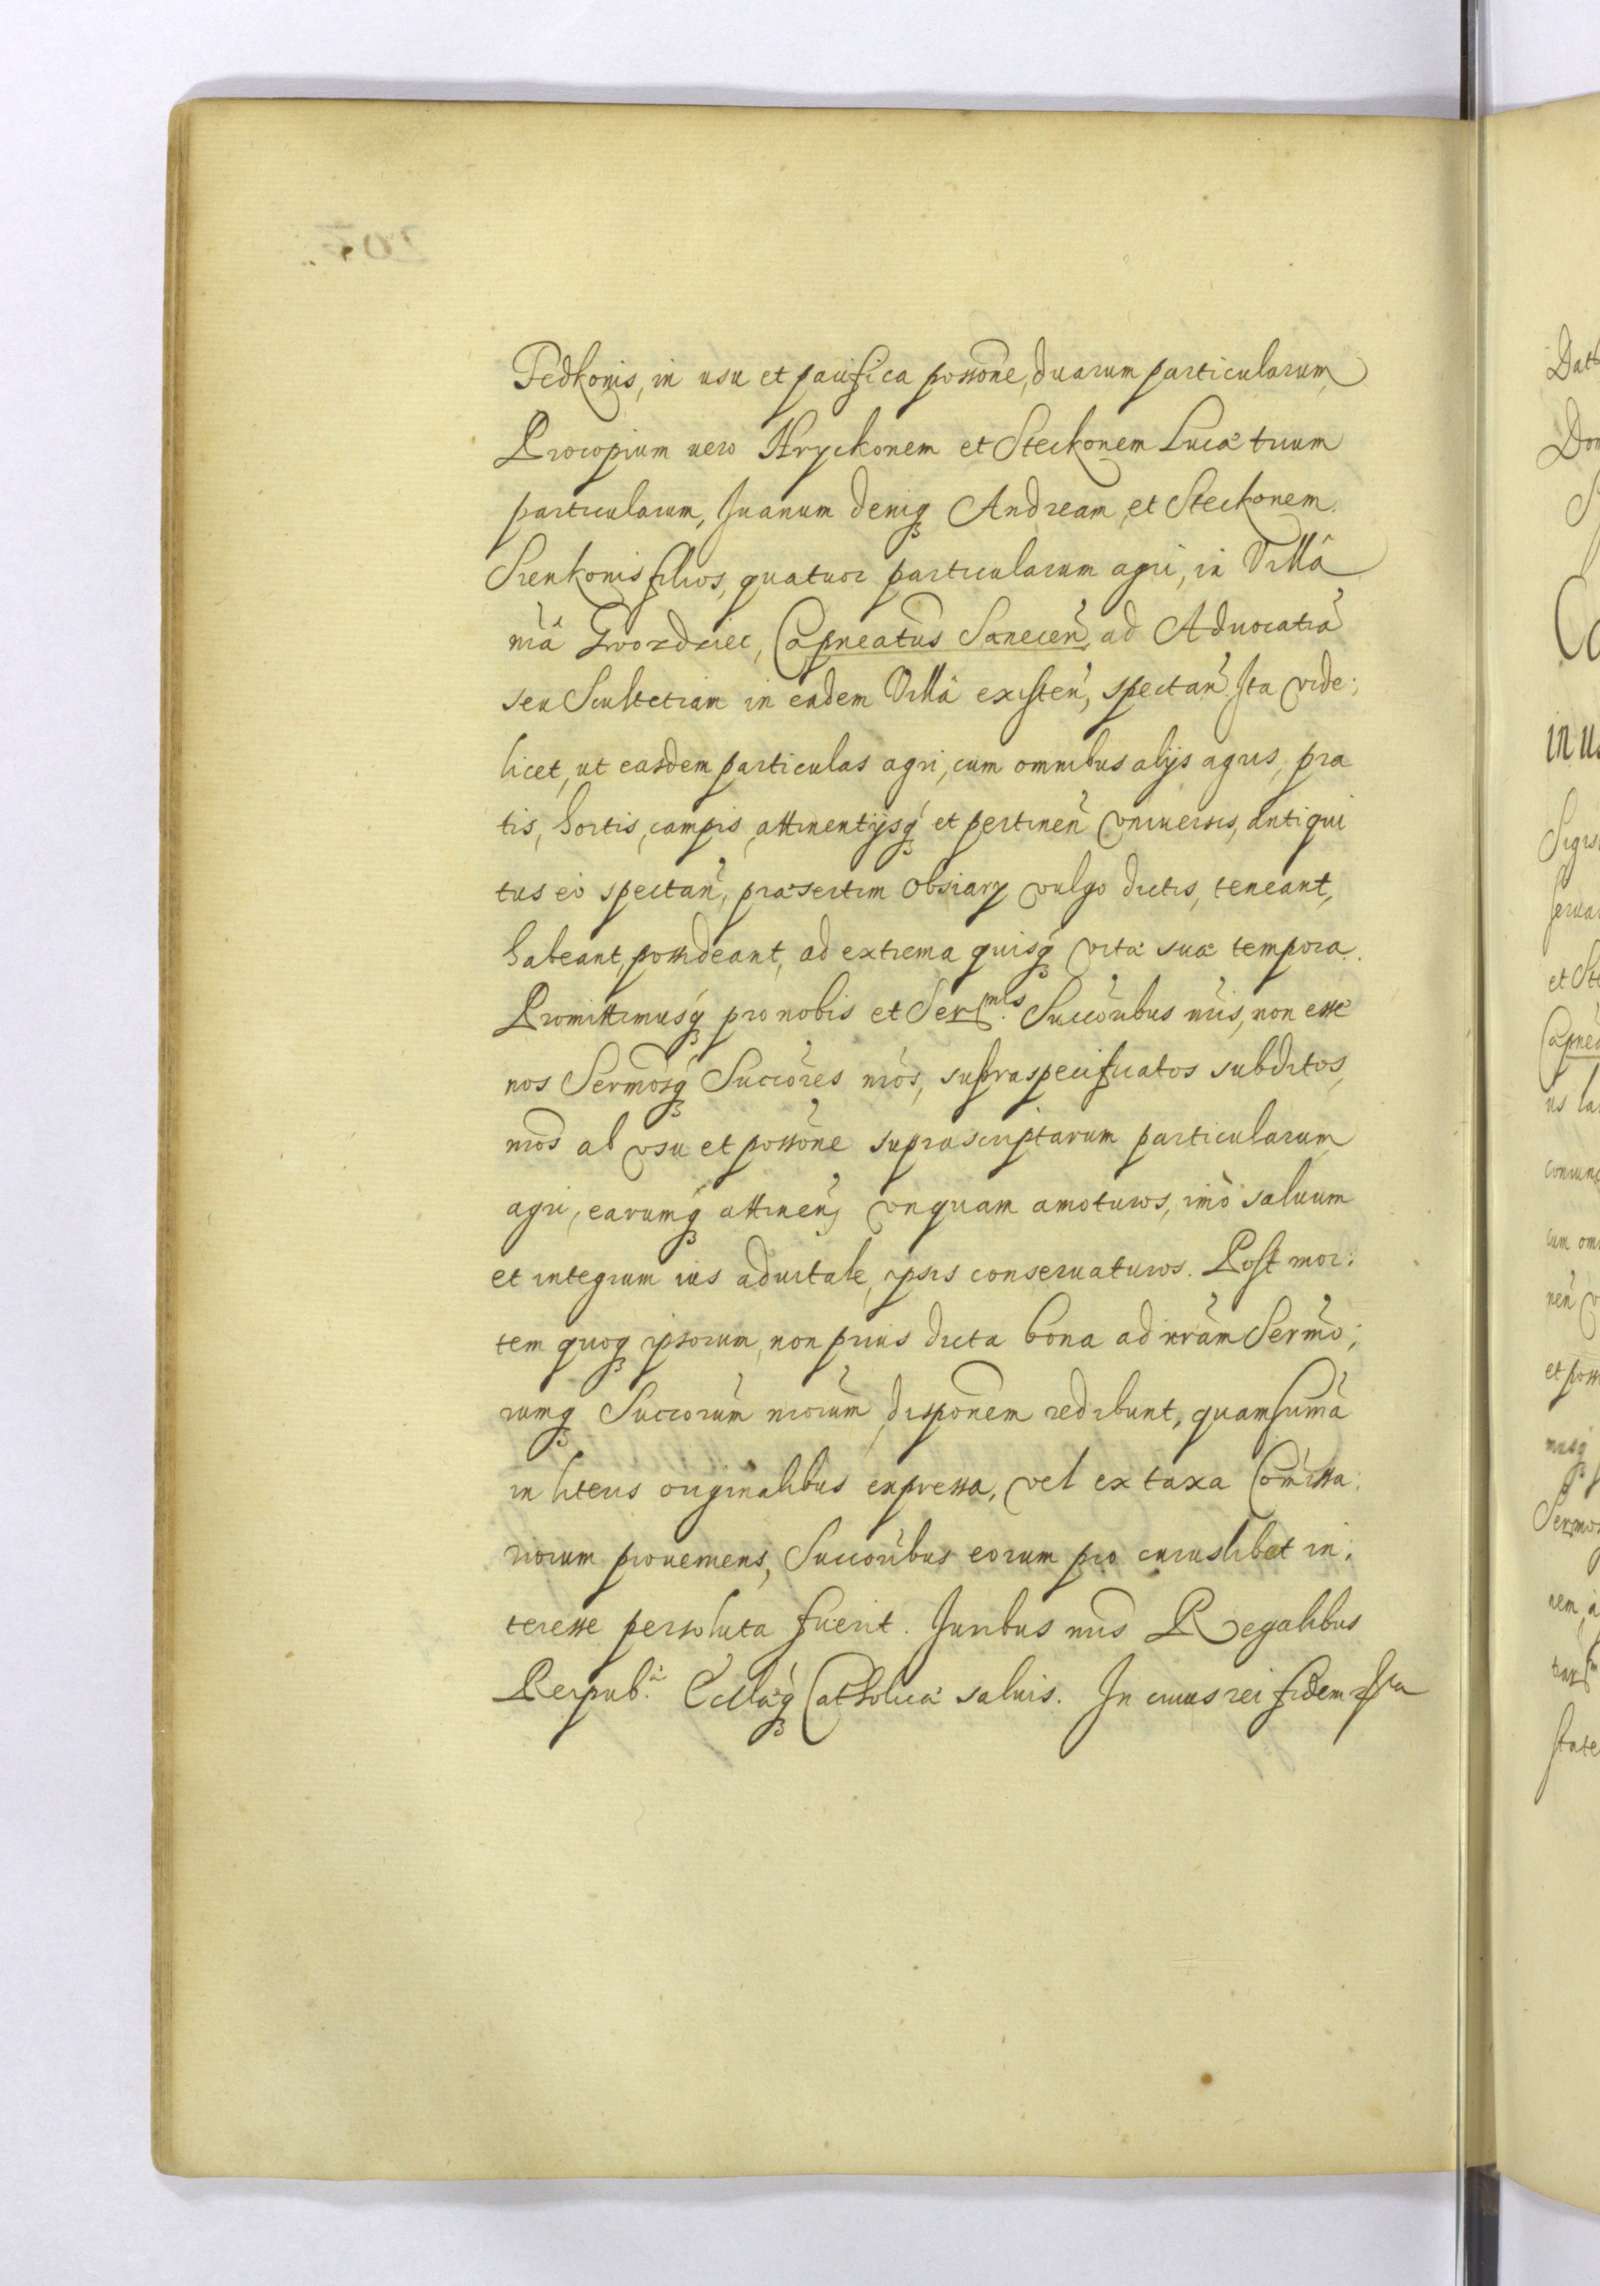 Fedkonis, in usu et pacifica possone, duarum particularum,
Procopium vero Hryckonem et Steckonem Lucæ trium
particularum, Juanum deniq Andream et Steckonem
Sienkonis filios, quatuor particularum agri, in Villâ
nrâ Gwozdziec, Capneatus Sanecen ad Advocatiã
seu Scultetiam in eadem Villâ existen, spectan. Ita vide:
licet, ut easdem particulas agri, cum omnibus alijs agris, pra
tis, hortis, campis, attinentijsq et pertinen universis, antiqui
tus eo spectan, præsertim Obsiary vulgo dictis, teneant,
habeant, possideant, ad extrema quisq vitæ suæ tempora.
Promittimusq pro nobis et Ser mis Succoribus nris, non esse
nos Sermosq Succores nros, supraspecificatos subditos,
nros ab usu et possone suprascriptarum particularum
agri, earumq attinen, unquam amoturos, imò salvum
et integrum ius advitale, ipsis conservaturos. Post mor:
tem quoq ipsorum, non prius dicta bona ad nram Sermo:
rumq Succorum nrorum, disponem redibunt, quam suma
in literis originalibus expressa, vel ex taxa Comissa:
riorum proveniens, Succoribus eorum pro cuiuslibet in:
teresse persoluta fuerit. Juribus nris Regalibus
Reipub. Ecclæq Catholicæ salvis. In cuius rei fidem